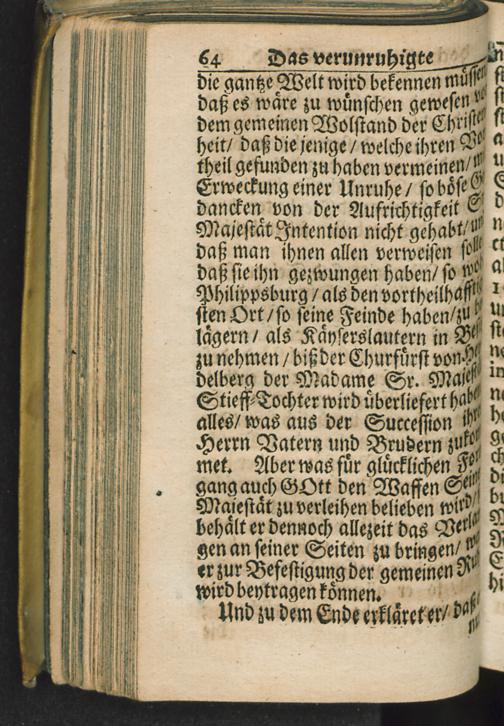 64 Das verunruhigte
die gantze Welt wird bekennen müssen
daß es wäre zu wünschen gewesen
dem gemeinen Wolstand der Christen
heit/ daß die jenige/ welche ihren
theil gefunden zu haben vermeinen/
Erweckung einer Unruhe/ so böse
dancken von der Aufrichtigkeit
Majestät Intention nicht gehabt/
daß man ihnen allen verweisen solle
daß sie ihn gezwungen haben/ so
Philippsburg/ als den vortheilhaffti
sten Ort/ so seine Feinde haben/ zu
lägern/ als Käyserslautern in
zu nehmen/ biß der Churfürst von
delberg der Madame Sr. Majest
Stieff-Tochter wird überliefert habe
alles/ was aus der Succession ihr
Herrn Vatern und Brudern zukom
met. Aber was für glücklichen
gang auch GOtt den Waffen Sein
Majestät zu verleihen belieben wird/
behält er dennoch allezeit das Verlan
gen an seiner Seiten zu bringen/
er zur Befestigung der gemeinen
wird beytragen können.
Und zu dem Ende erkläret er/ daß